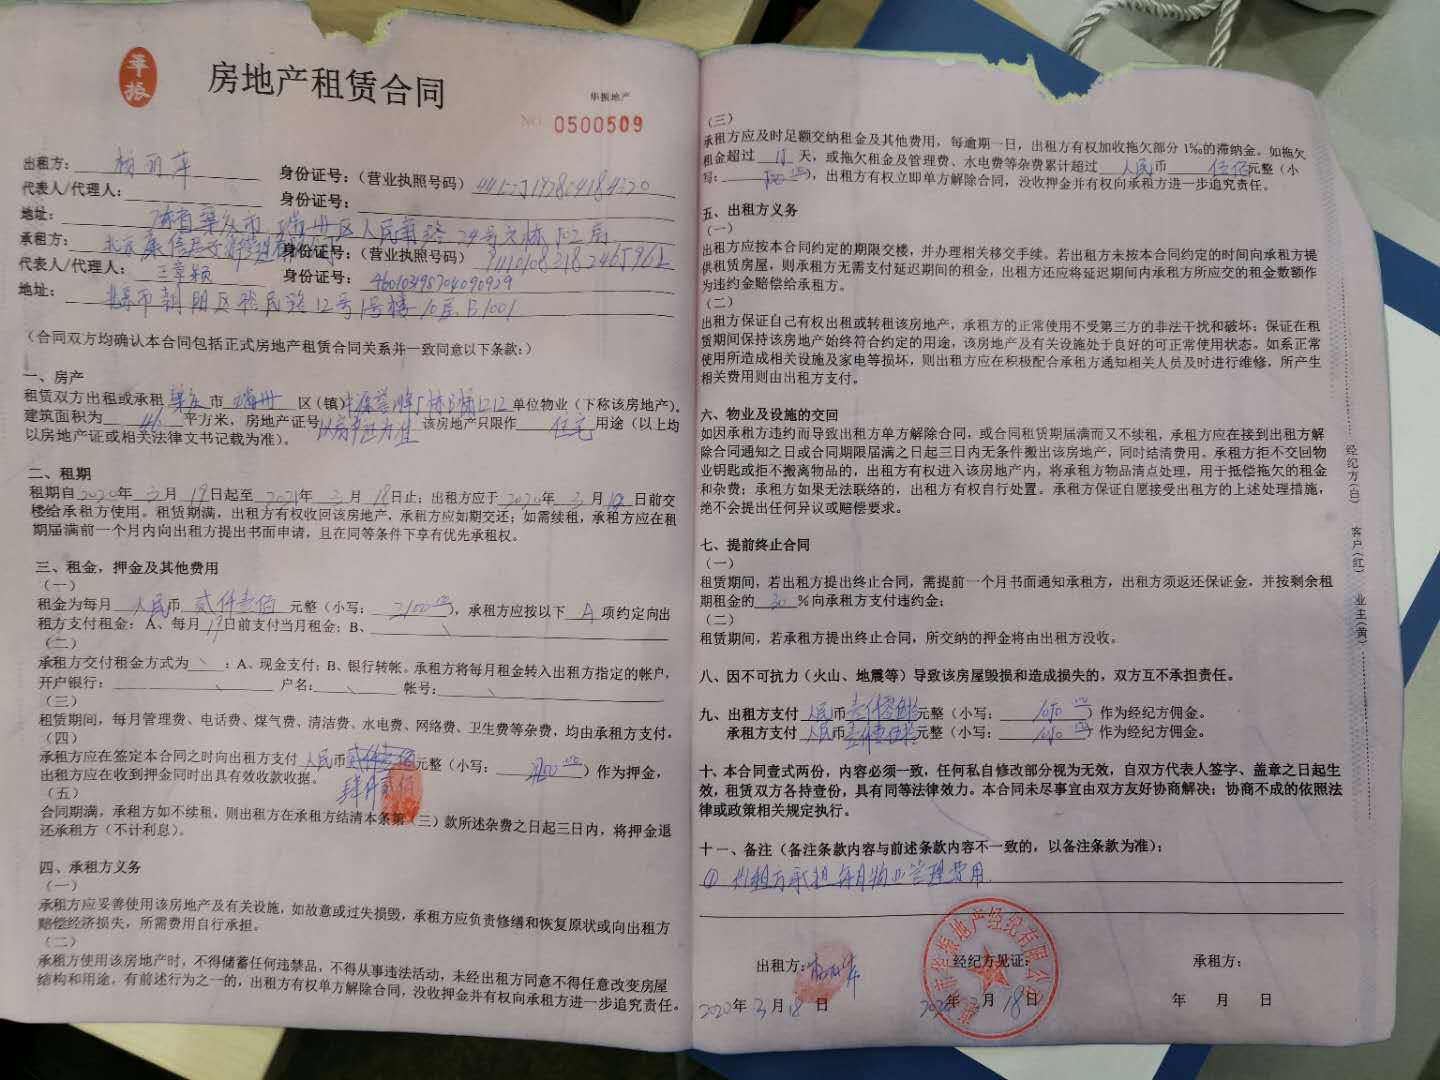 華振
房地产租赁合同
华振地产
NO 0500509
出租方：
身份证号：（营业执照号码）
代表人/代理人：
身份证号：
地址：
承租方：
身份证号：（营业执照号码）
代表人/代理人：王章颖
身份证号：460103198704090929
地址：北京市朝阳区裕民路12号1号楼10层B1001
（合同双方均确认本合同包括正式房地产租赁合同关系并一致同意以下条款：）
一、房产
租赁双方出租或承租 肇庆 市 端州 区（镇） 1212 单位物业（下称该房地产）。
建筑面积为 46 平方米，房地产证号 以房产证为准 该房地产只限作 住宅 用途（以上均
以房地产证或相关法律文书记载为准）。
二、租期
租期自2020年3月19日起至2021年3月18日止；出租方应于2020年3月 日前交
楼给承租方使用。租赁期满，出租方有权收回该房地产，承租方应如期交还；如需续租，承租方应在租
期届满前一个月内向出租方提出书面申请，且在同等条件下享有优先承租权。
三、租金，押金及其他费用
（一）
租金为每月 人民币 贰仟壹佰 元整（小写：2100.00），承租方应按以下 A 项约定向出
租方支付租金：A、每月19日前支付当月租金；B、
（二）
承租方交付租金方式为 ：A、现金支付；B、银行转帐。承租方将每月租金转入出租方指定的帐户，
开户银行： 户名： 帐号：
（三）
租赁期间，每月管理费、电话费、煤气费、清洁费、水电费、网络费、卫生费等杂费，均由承租方支付。
（四）
承租方应在签定本合同之时向出租方支付 人民币 贰仟壹佰 元整（小写： ）作为押金，
肆仟贰佰
出租方应在收到押金同时出具有效收款收据。
（五）
合同期满，承租方如不续租，则出租方在承租方结清本条第（三）款所述杂费之日起三日内，将押金退
还承租方（不计利息）。
四、承租方义务
（一）
承租方应妥善使用该房地产及有关设施，如故意或过失损毁，承租方应负责修缮和恢复原状或向出租方
赔偿经济损失，所需费用自行承担。
（二）
承租方使用该房地产时，不得储蓄任何违禁品，不得从事违法活动，未经出租方同意不得任意改变房屋
结构和用途，有前述行为之一的，出租方有权单方解除合同，没收押金并有权向承租方进一步追究责任。
（三）
承租方应及时足额交纳租金及其他费用，每逾期一日，出租方有权加收拖欠部分1‰的滞纳金。如拖欠
租金超过 15 天，或拖欠租金及管理费、水电费等杂费累计超过 人民币 伍佰元整（小
写：500.00），出租方有权立即单方解除合同，没收押金并有权向承租方进一步追究责任。
五、出租方义务
（一）
出租方应按本合同约定的期限交楼，并办理相关移交手续。若出租方未按本合同约定的时间向承租方提
供租赁房屋，则承租方无需支付延迟期间的租金，出租方还应将延迟期间内承租方所应交的租金数额作
为违约金赔偿给承租方。
（二）
出租方保证自己有权出租或转租该房地产，承租方的正常使用不受第三方的非法干扰和破坏；保证在租
赁期间保持该房地产始终符合约定的用途，该房地产及有关设施处于良好的可正常使用状态。如系正常
使用所造成相关设施及家电等损坏，则出租方应在积极配合承租方通知相关人员及时进行维修，所产生
相关费用则由出租方支付。
六、物业及设施的交回
如因承租方违约而导致出租方单方解除合同，或合同租赁期届满而又不续租，承租方应在接到出租方解
除合同通知之日或合同期限届满之日起三日内无条件搬出该房地产，同时结清费用。承租方拒不交回物
业钥匙或拒不搬离物品的，出租方有权进入该房地产内，将承租方物品清点处理，用于抵偿拖欠的租金
和杂费；承租方如果无法联络的，出租方有权自行处置。承租方保证自愿接受出租方的上述处理措施，
绝不会提出任何异议或赔偿要求。
七、提前终止合同
（一）
租赁期间，若出租方提出终止合同，需提前一个月书面通知承租方，出租方须返还保证金，并按剩余租
期租金的 30 %向承租方支付违约金；
（二）
租赁期间，若承租方提出终止合同，所交纳的押金将由出租方没收。
八、因不可抗力（火山、地震等）导致该房屋毁损和造成损失的，双方互不承担责任。
九、出租方支付 人民币 壹仟零伍拾元整（小写：1050.00）作为经纪方佣金。
承租方支付 人民币 元整（小写： ）作为经纪方佣金。
十、本合同壹式两份，内容必须一致，任何私自修改部分视为无效，自双方代表人签字、盖章之日起生
效，租赁双方各持壹份，具有同等法律效力。本合同未尽事宜由双方友好协商解决；协商不成的依照法
律或政策相关规定执行。
十一、备注（备注条款内容与前述条款内容不一致的，以备注条款为准）：
① 出租方承担每月物业管理费用.
出租方：
经纪方见证：
承租方：
2020年3月18日
2020年3月18日
年 月 日
华振地产经纪有限公司
经纪方（白） 客户（红） 业主（黄）